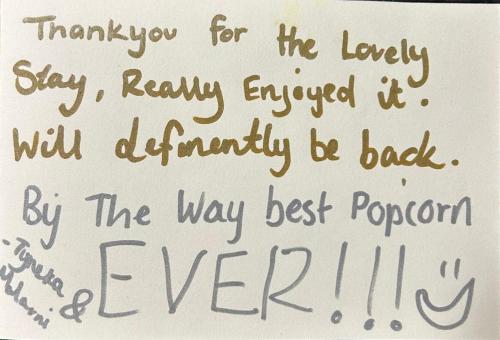 Thankyou for the Lovely
Stay, Really Enjoyed it.
Will definently be back.
By The Way best Popcorn
EVER!!!
- Tyneka
&